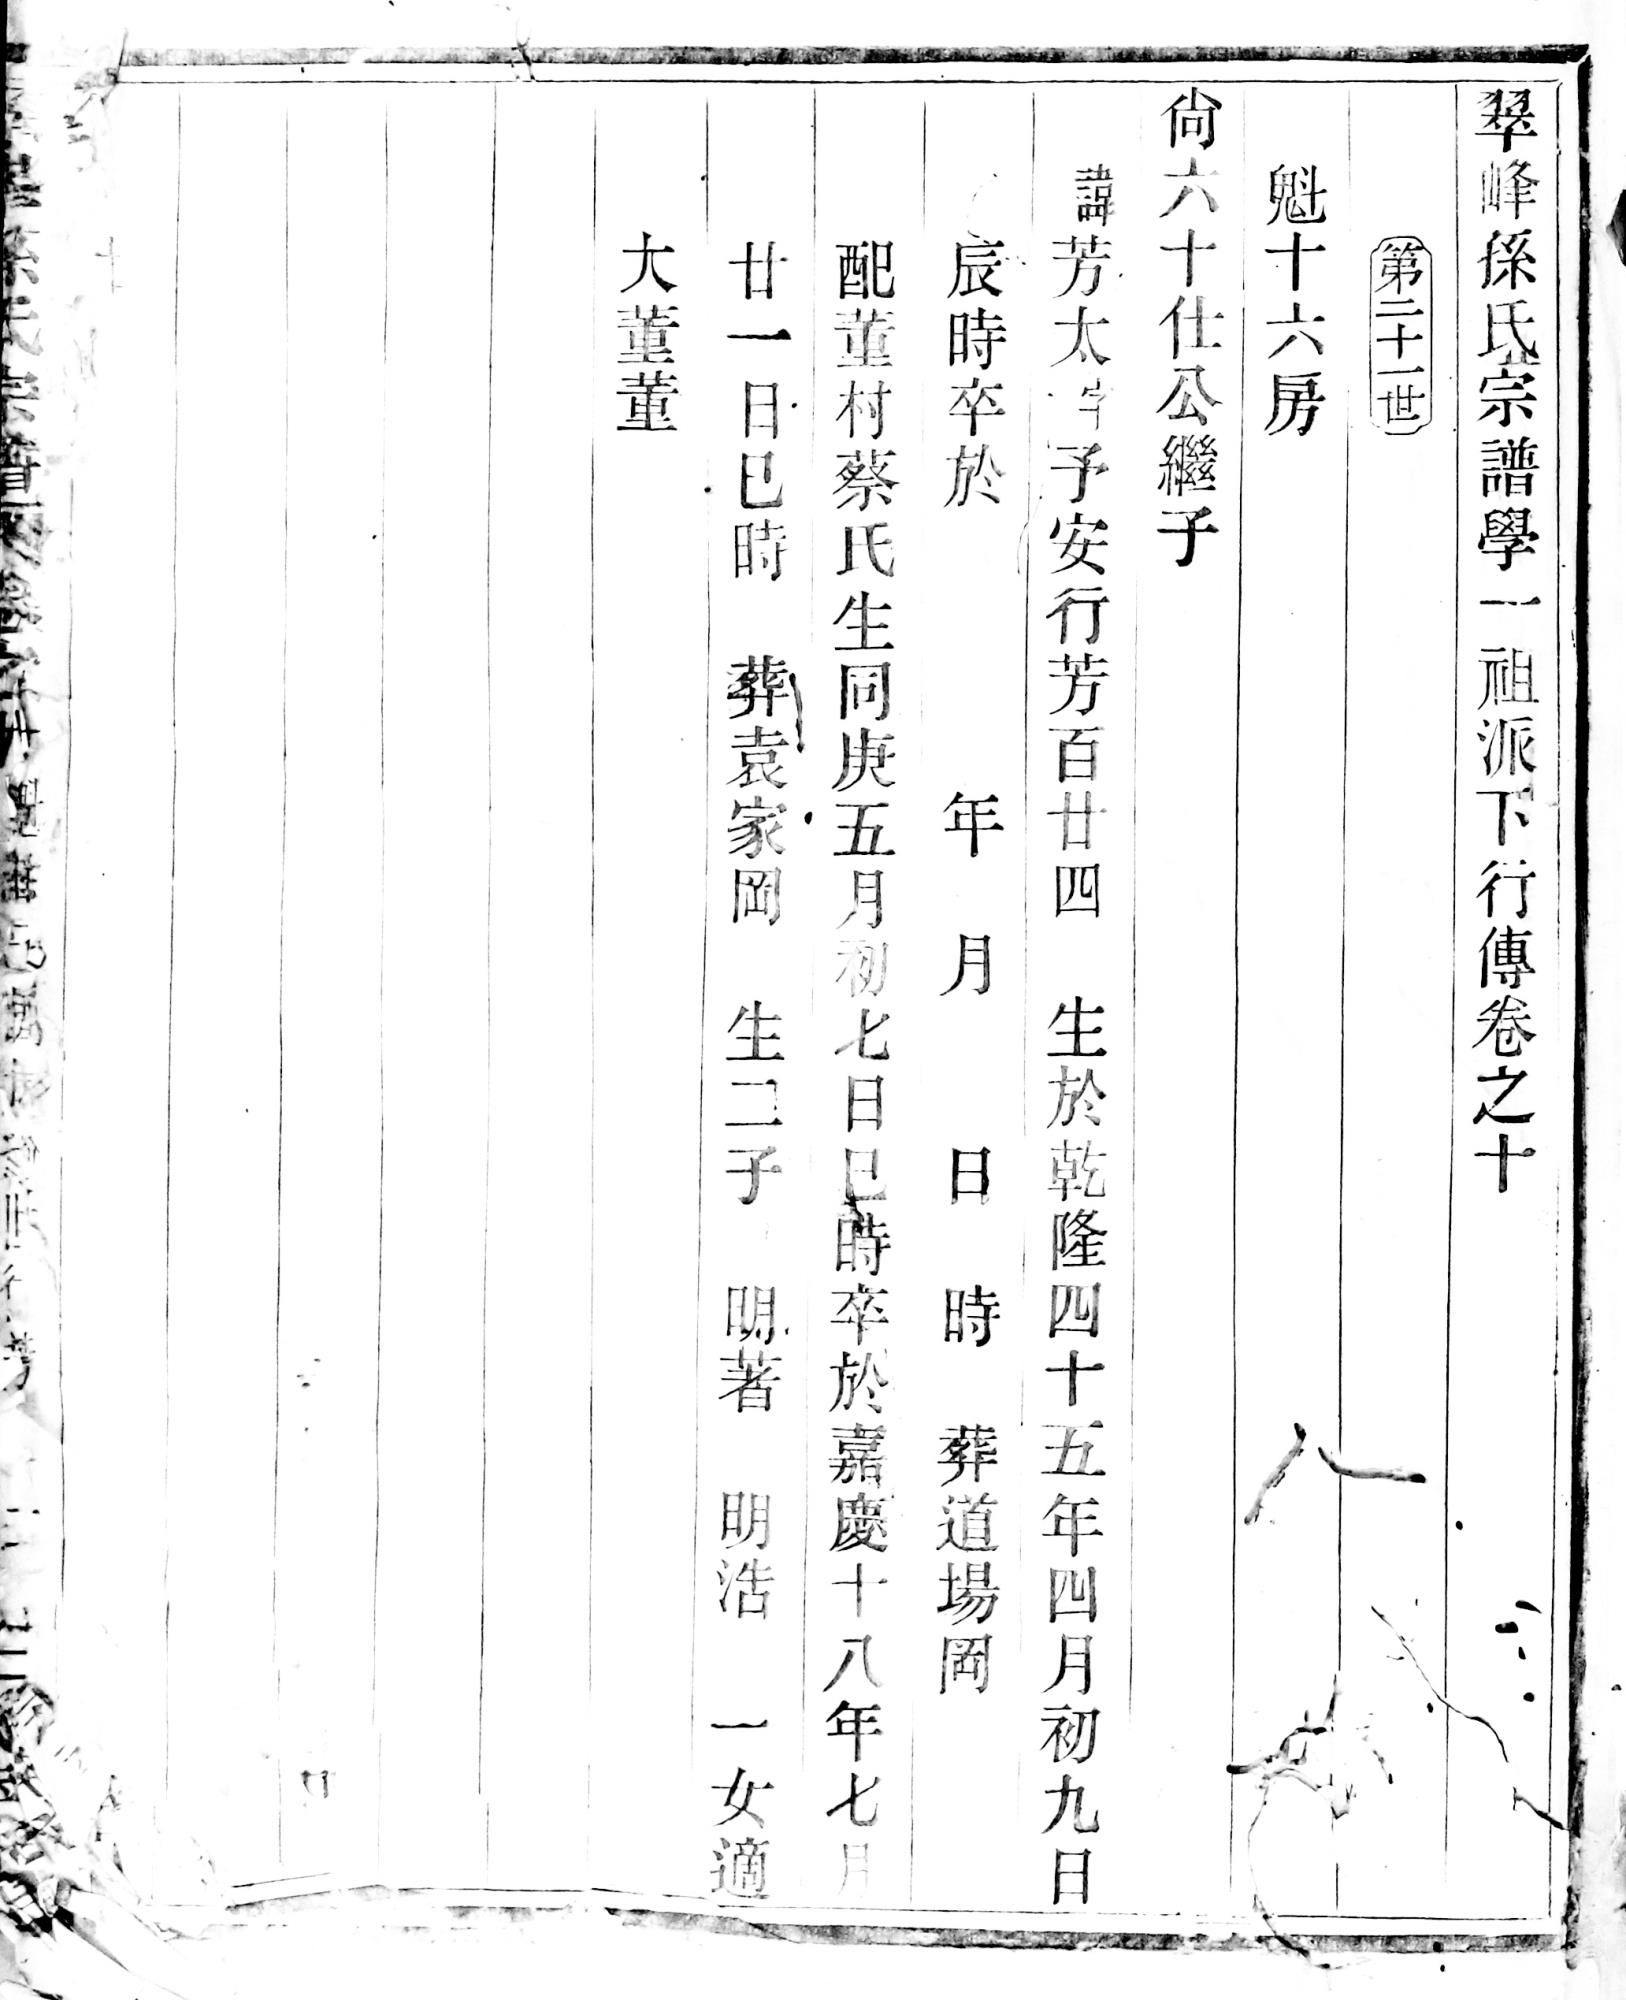 翠峰孫氏宗譜學一祖派下行傳卷之十
第二十一世
魁十六房
尙六十仕公繼子
諱芳太字予安行芳百廿四　生於乾隆四十五年四月初九日
辰時卒於　年　月　日　時　葬道場岡
配董村蔡氏生同庚五月初七日巳時卒於嘉慶十八年七月
廿一日巳時　葬袁家岡　生二子　明著　明浩　一女適
大董董